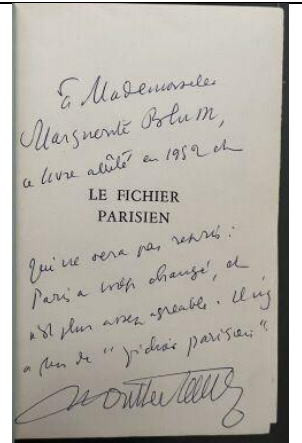 à Mademoiselle
Marguerite Blum,
ce livre en 1952 et
LE FICHIER
PARISIEN
qui ne sera pas repris :
Paris a trop changé, et
n'est plus assez agréable. Il n'y
a plus de "fichier parisien".
Montherlant